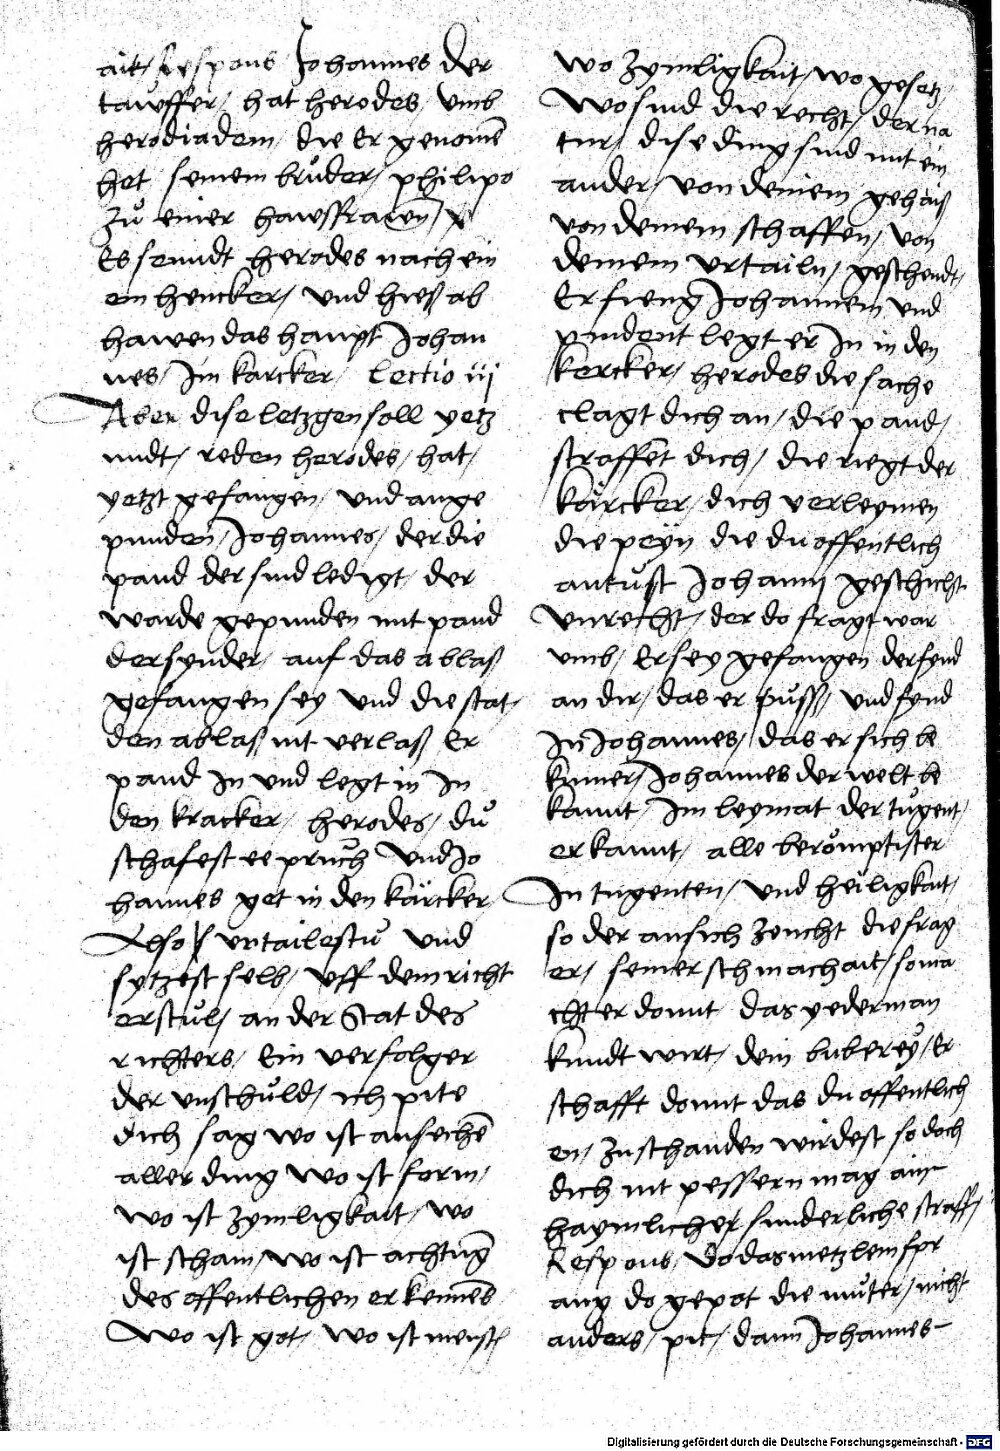 ait / Respons Johannes der
tawffer / hat herodes / vmb
herodiadem / die Er genomē
het seinem brůder / philipo
zů einer hawsfrawen /
Es senndt herodes nach ein
en hencker / vnd hieß ab
hawen das haupt Johan
nes / Jm karcker / Lectio iij
Aber dise letzgen soll yetz
undt / reden herodes / hat /
yetzt gefangen / vnd ange
punden / Johannes / der die
pand der sind ledigt / der
warde gepunden mit pand
der synder / auf das ablaß
gefangen sey vnd die stat
den ablaß nit verlaß Er
pand Jn vnd legt in Jn
den kracker / herodes / dů
schafest ee pruch vnd Jo
hannes get in den kärcker /
Also vrtailestu vnd
sytzest selb / vff dem richt
erstůl / an der Stat des
richters / Ein verfolger
der vnschůld / ich pite
dich sag wo ist ansechē
aller ding wo ist form /
wo ist zymligkait / wo
ist scham / wo ist achtūg
des offentlichen erkennēs
Wo ist got / wo ist mensch
wo zymligkait / wo gesetz /
Wo sind die recht / der na
tur / dise ding sind mit ein
ander / von deinem gehaiß
von deinem schaffen / von
deinem vrtailn / geschendt /
Er fieng Johannem vnd
pindent legt er Jn in den
kercker / herodes die sache
clagt dich an / die pand /
straffet dich / die riegt der
kärcker / dich verleymen
die peyn die du offentlich
antůst Johanni geschicht
vnrecht / der do fragt war
vmb / Er sey gefangen der fynd
an dir / das er půss / vnd fynd
Jn Johannes / das er sich be
kimer / Johannes der welt be
kannt / Jm leymat der tůgent /
erkannt / alle berömptister
Jn tugenten / vnd heiligkait /
so der an sich zeucht die frag
er / seiner schmachait / so ma
cht er domit das yederman
kundt wirt / dein buberey / Er
schafft domit das du offentlich
en / zu schanden wirdest so doch
dich nit pessern mag ain
haymlicher sunderliche straff /
Respons / Do das metzlein spr
ang do gepot die můter / nicht
anders / pit / dann Johannes
Digitalisierung gefördert durch die Deutsche Forschungsgemeinschaft - DFG